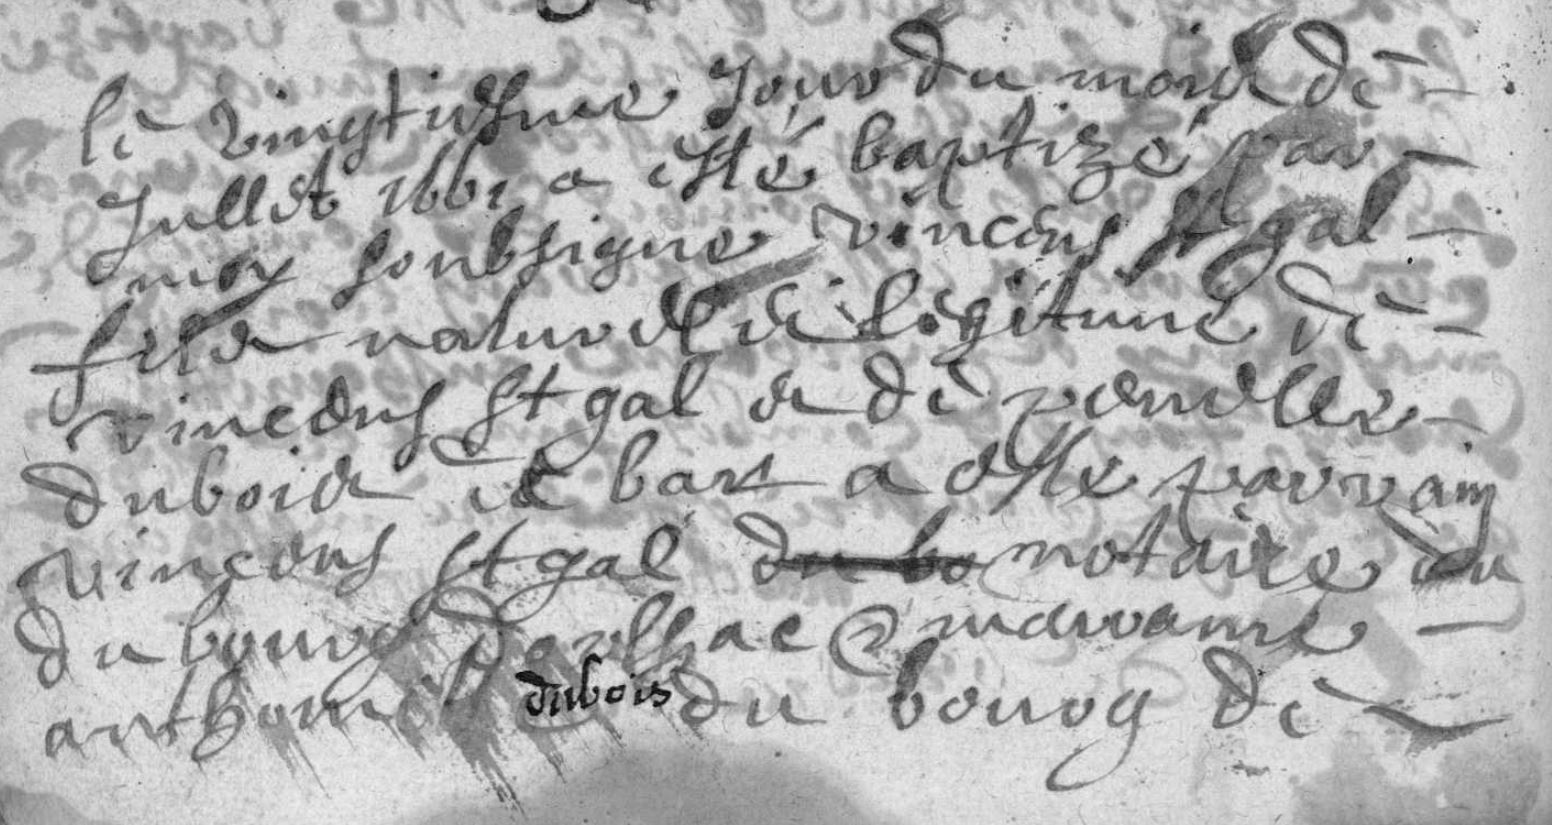 le vingtiesme Jour du mois de
Jullet 1661 a esté baptizé par
moy soubsigne vincens st gal
fils naturel et legitime de
vincens st gal et de peirelle
dubois et bart a este parrain
vincens st gal du bo notaire du
du bourg d'eulhac & marranne
anthonie dubois du bourg de